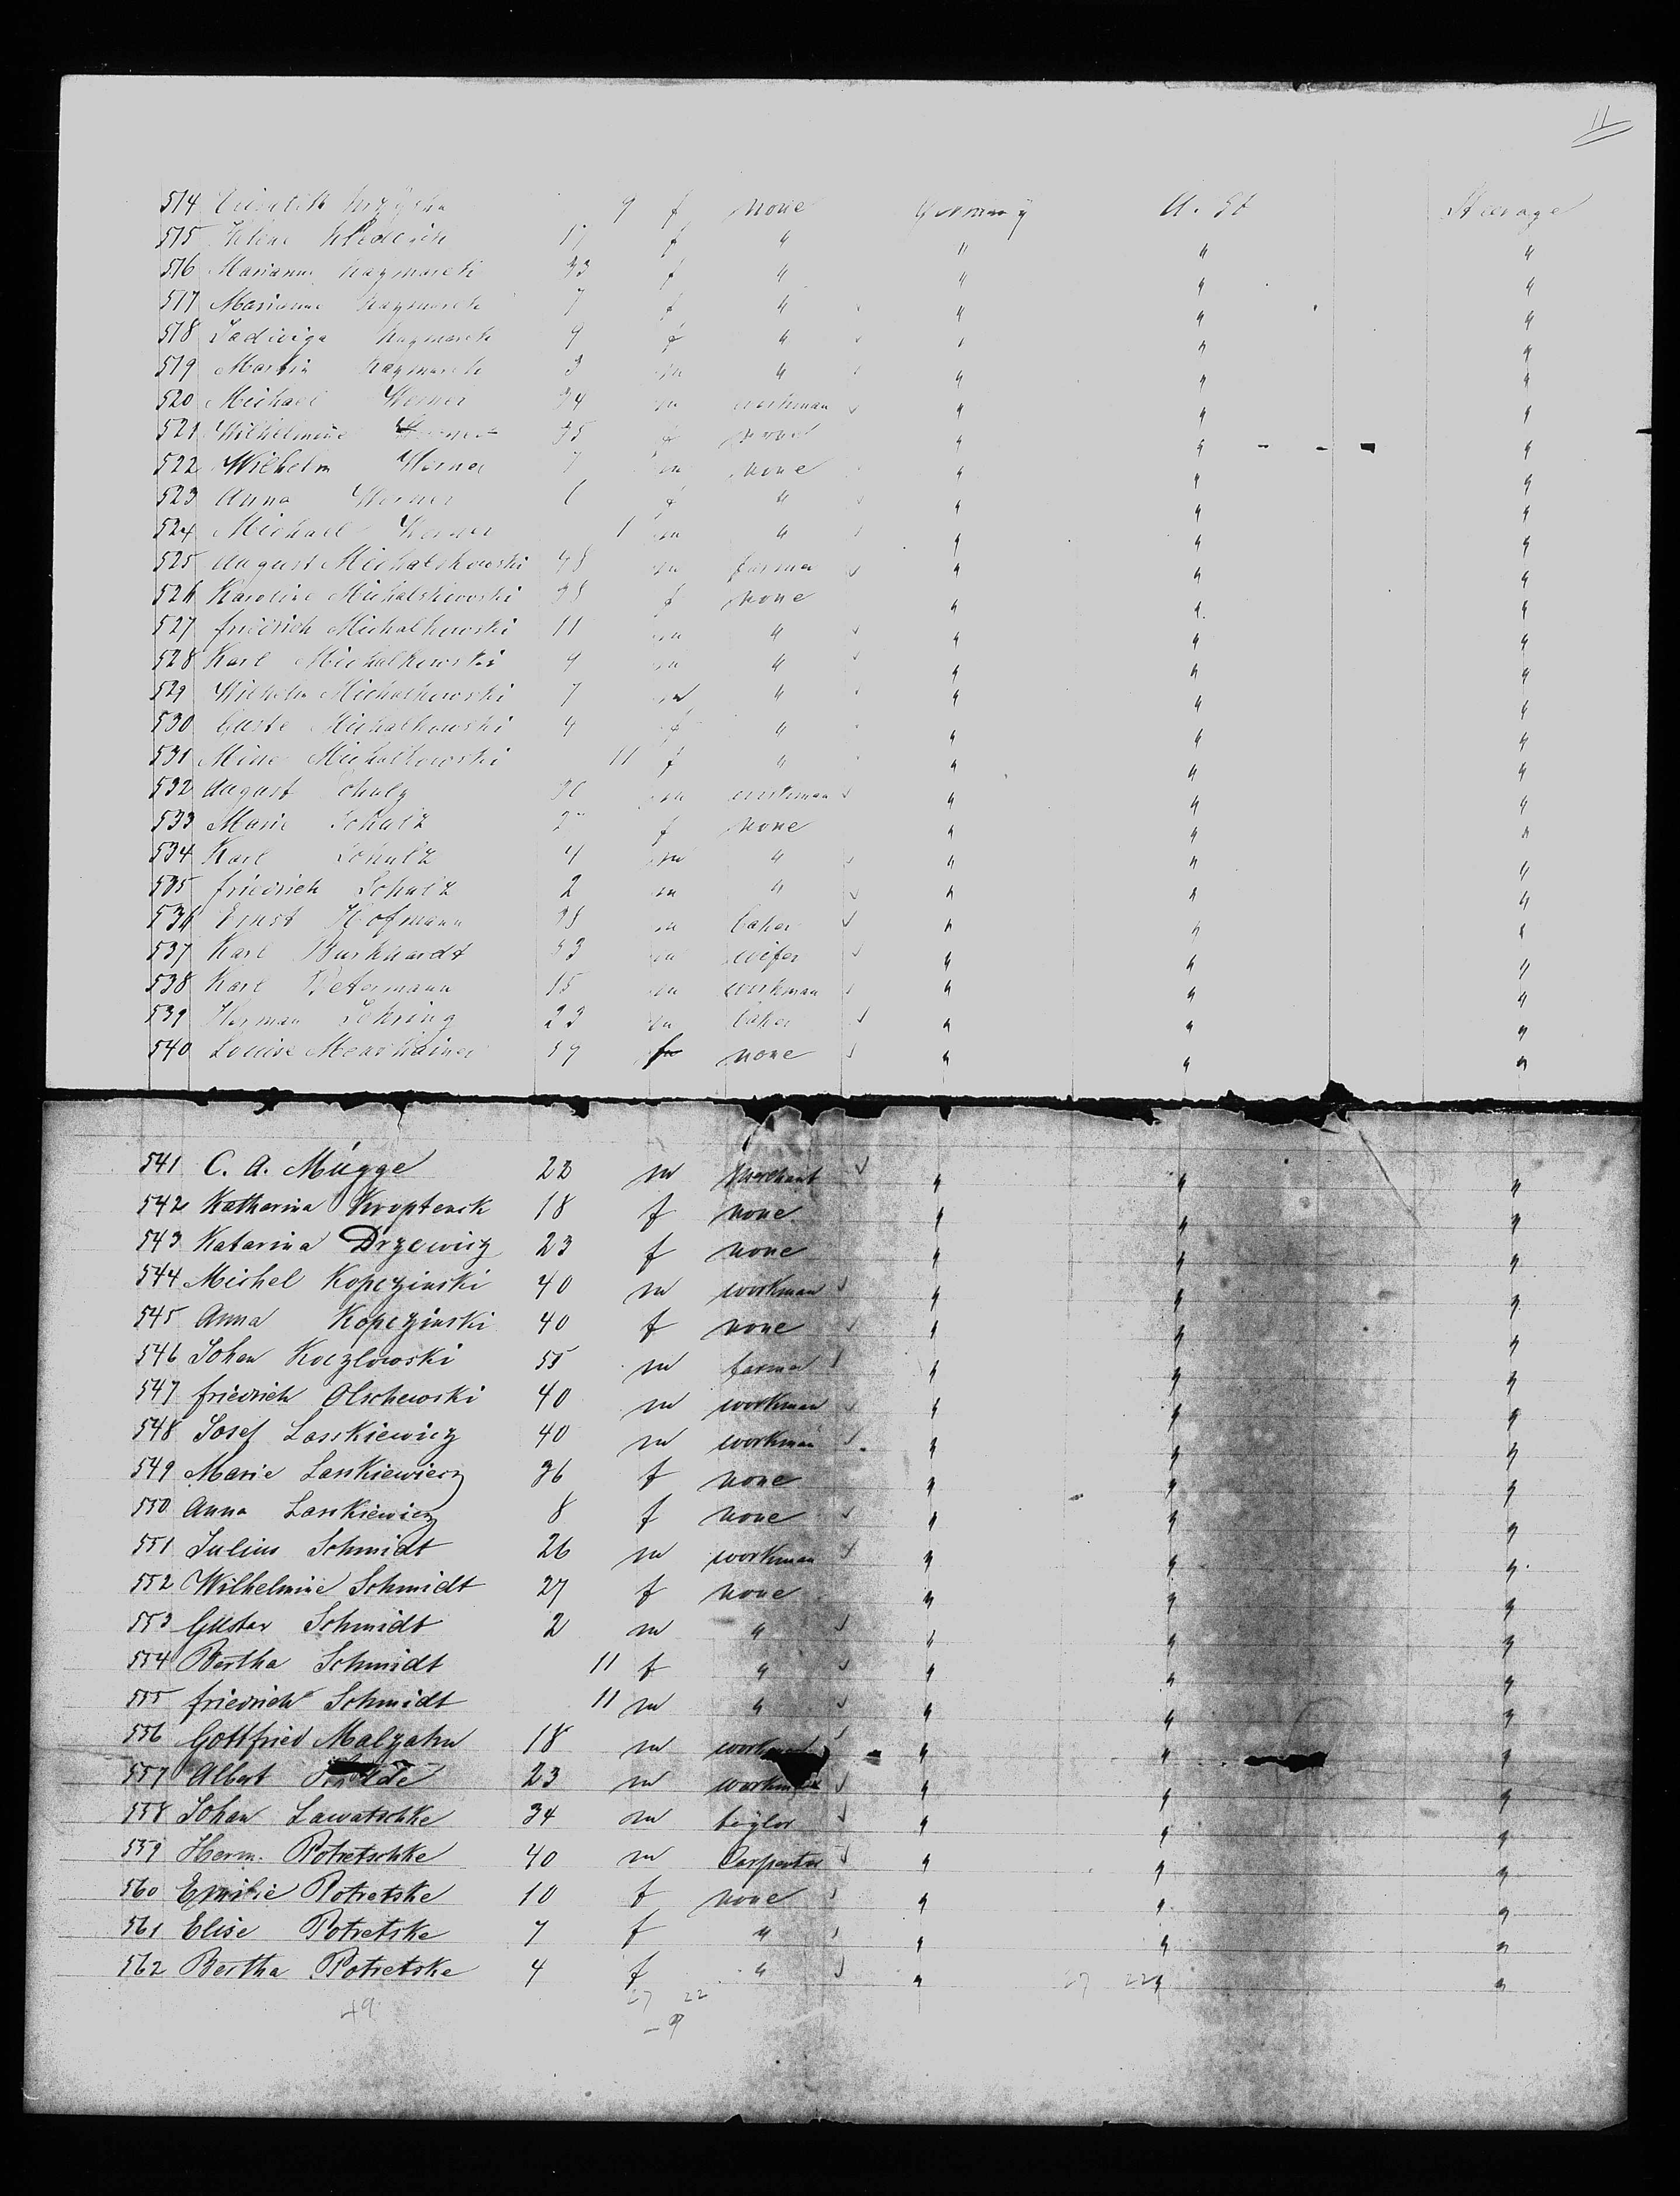 11
514 9 f none Germany U. St Steerage
515 17 f " " " "
516 Marianne 33 f " " " "
517 Marianne 7 f " " " "
518 Jadwiga 9 f " " " "
519 Martin 3 m " " " "
520 Michael Werner 34 m workman " " "
521 Wilhelmine 35 f none " " "
522 Wilhelm Werner 7 m none " " "
523 Anna Werner 6 f " " " "
524 Michael Werner 1 m " " " "
525 August Michalskowski 48 m farmer " " "
526 Karoline Michalskowski 38 f none " " "
527 friedrich Michalkowski 11 m " " " "
528 Karl Michalkowski 9 m " " " "
529 Wilhelm Michalkowski 7 m " " " "
530 Guste Michalkowski 4 f " " " "
531 Mine Michalkowski 11 f " " " "
532 August Schulz 30 m workman " " "
533 Marie Schulz f none " " "
534 Karl Schulz 4 m " " " "
535 friedrich Schulz 2 m " " " "
536 Ernst Hofmann 38 m baker " " "
537 Karl Burkhardt 53 m " " "
538 Karl Petermann 15 m workman " " "
539 Herman Sehring 23 m baker " " "
540 Louise 59 f none " " "
541 C. A. Mügge 22 m Merchant " " "
542 Katharina 18 f none " " "
543 Katarina Drzewicz 23 f none " " "
544 Michel Kopczinski 40 m workman " " "
545 Anna Kopczinski 40 f none " " "
546 Johan Koczlowski 55 m farmer " " "
547 friedrich Olschewski 40 m workman " " "
548 Josef Laskiewicz 40 m workman " " "
549 Marie Laskiewicz 36 f none " " "
550 Anna Laskiewicz 8 f none " " "
551 Julius Schmidt 26 m workman " " "
552 Wilhelmine Schmidt 27 f none " " "
553 Gustav Schmidt 2 m " " " "
554 Bertha Schmidt 11 f " " " "
555 friedrich Schmidt 11 m " " " "
556 Gottfried Malzahn 18 m workman " " "
557 Albert 23 m workman " " "
558 Johan Lawatschke 34 m taylor " " "
559 Herm. Potretschke 40 m Carpenter " " "
560 Emilie Potretske 10 f none " " "
561 Elise Potretske 7 f " " " "
562 Bertha Potretske 4 f " " " "
49 27 22 27 22